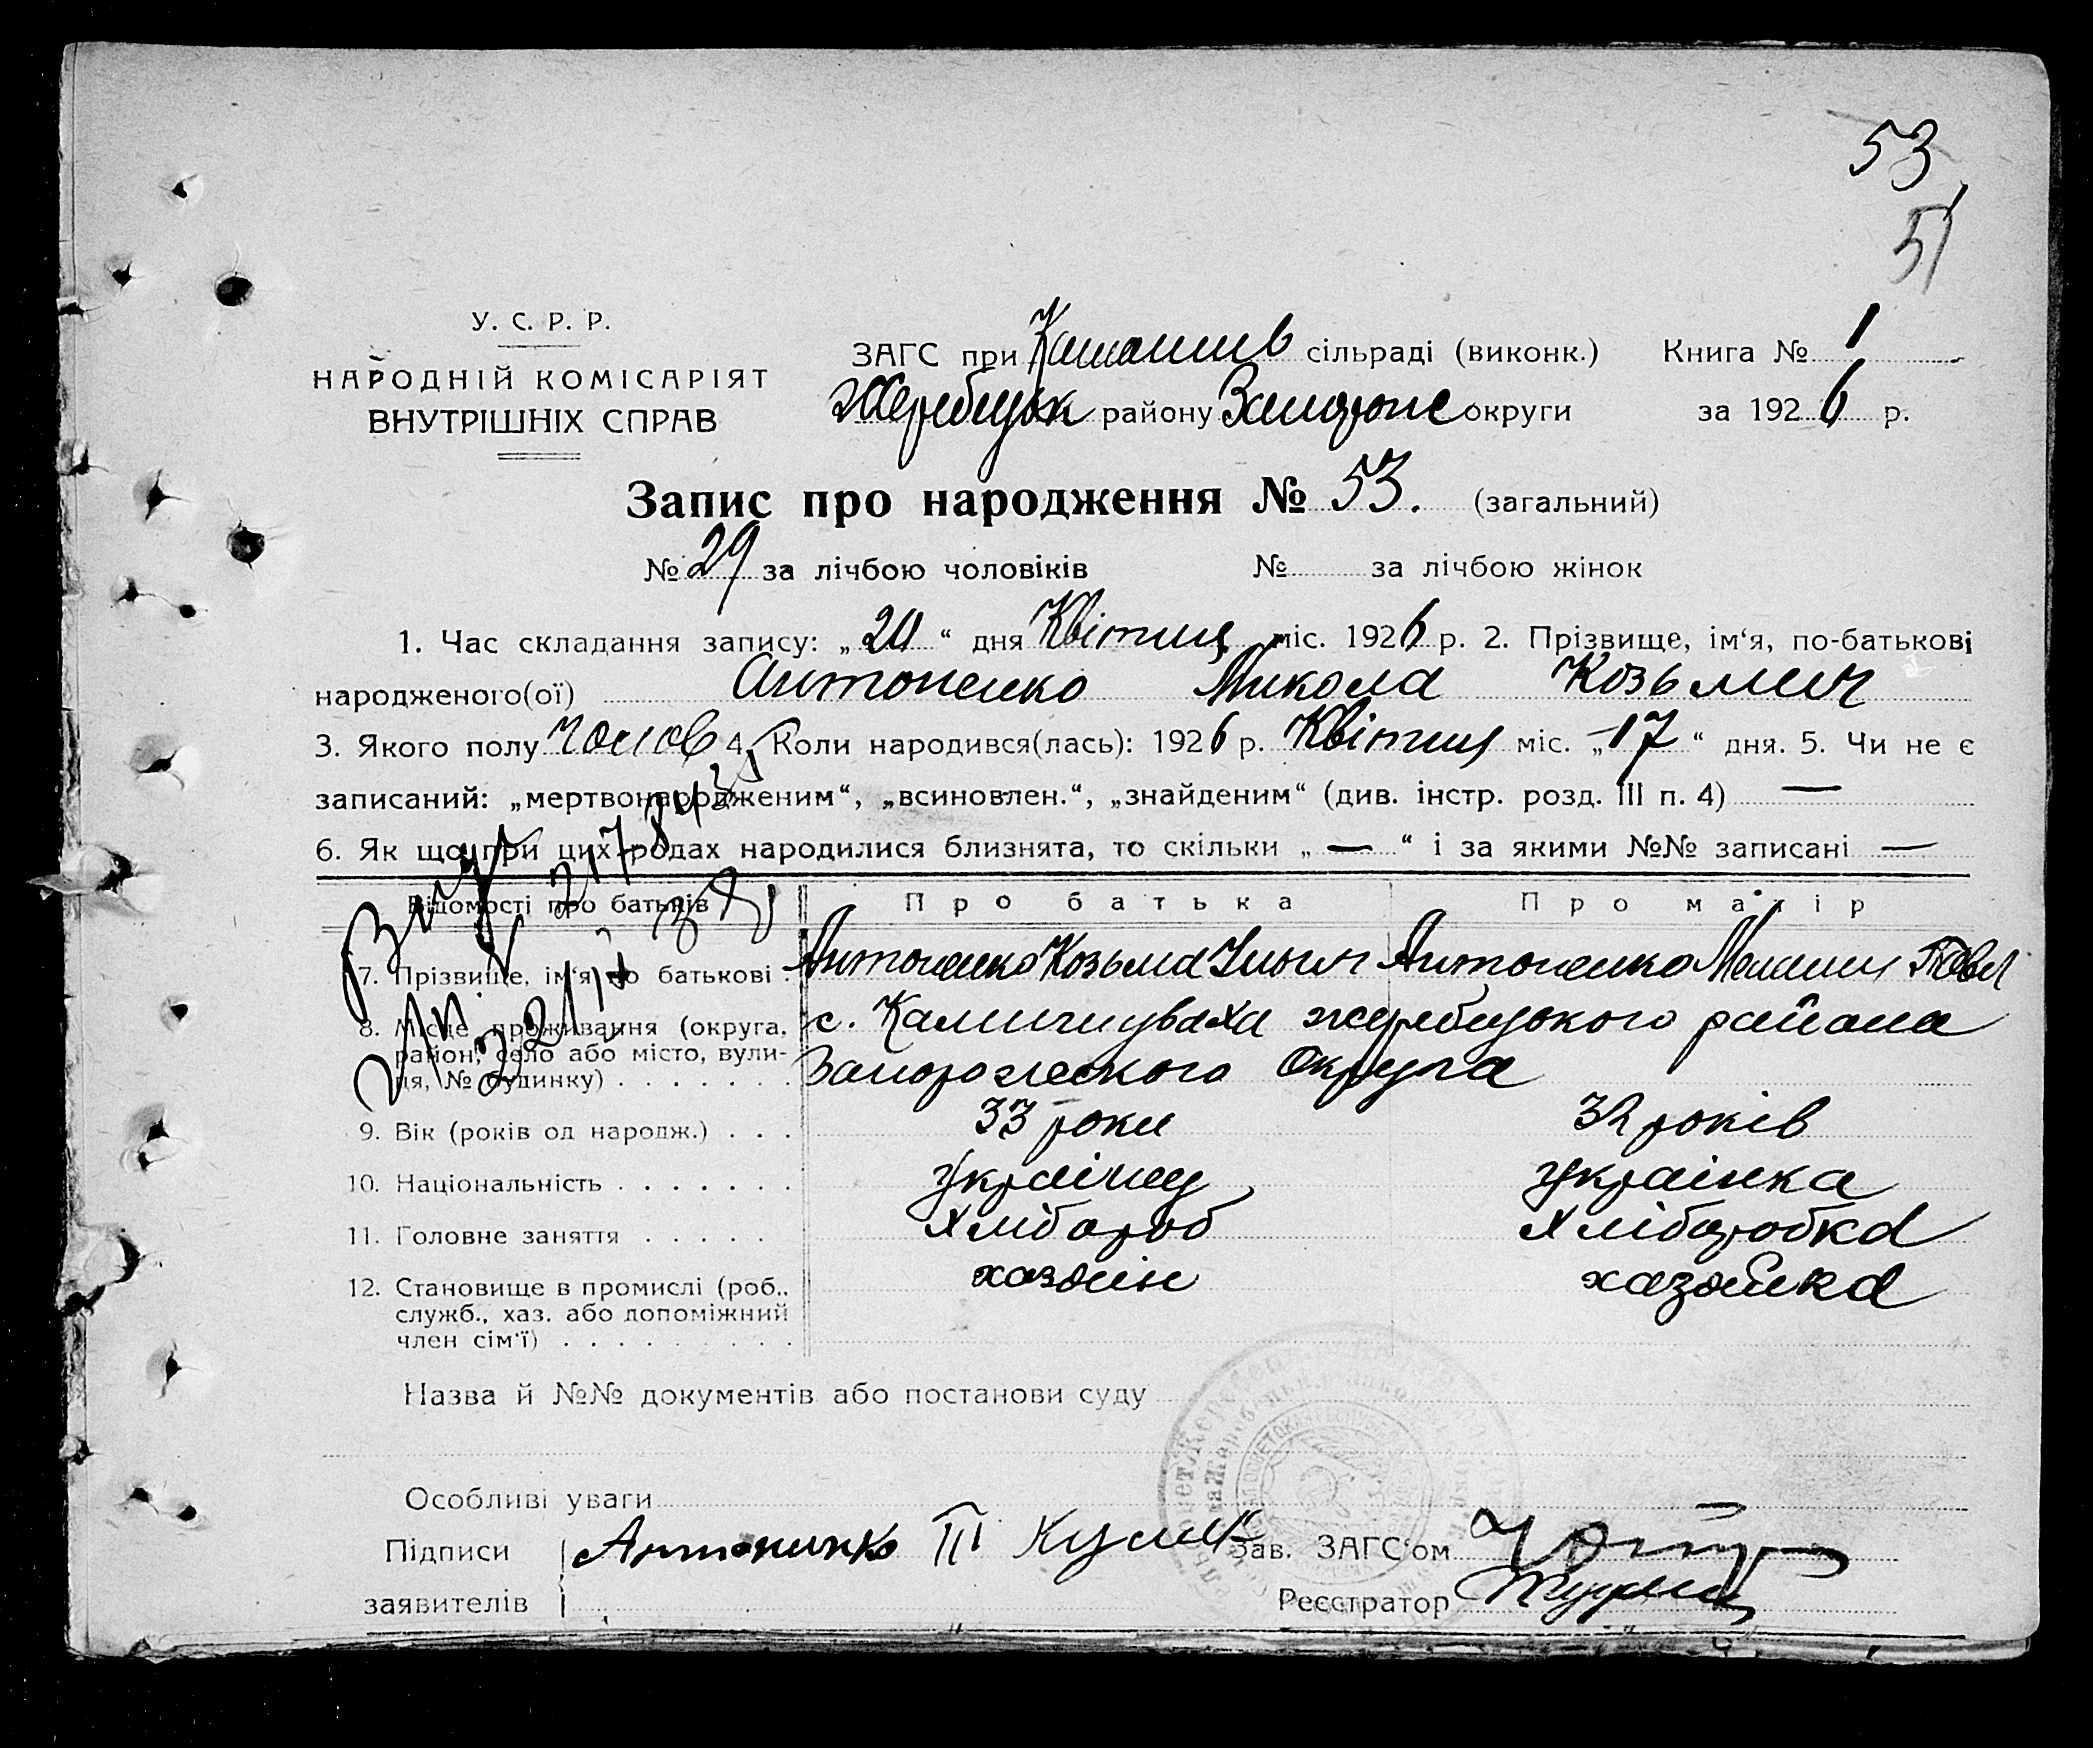 53
51
У. С. Р. Р.
НАРОДНІЙ КОМІСАРІЯТ
ВНУТРІШНІХ СПРАВ
ЗАГС при сільраді (виконк.) Книга № 1
Жеребцьк району округи за 1926 р.
Запис про народження № 53. (загальний)
№ 29 за лічбою чоловіків № за лічбою жінок
1. Час складання запису: „20“ дня Квітня міс. 1926 р. 2. Прізвище, ім‘я, по-батькові
народженого(ої) Антоненко Микола Козьмич
3. Якого полу чолов 4. Коли народився(лась): 1926 р. Квітня міс. „17“ дня. 5. Чи не є
записаний: „мертвонародженим“, „всиновлен.“, „знайденим“ (див. інстр. розд. III п. 4) —
6. Як що при цих родах народилися близнята, то скільки „—“ і за якими №№ записані —
Відомості про батьків Про батька Про матір
7. Прізвище, ім‘я по батькові . Антоненко Козьма Ильич Антоненко Павл
8. Місце проживання (округа, с. Камишуваха жеребцького района
район, село або місто, вули- Запорожского Округа
ця, № будинку) . . . . . . .
9. Вік (років од народж.) . . . 33 роки 32 років
10. Національність . . . . . . . Українец українка
11. Головне заняття . . . . . Хлібороб Хліборобка
12. Становище в промислі (роб., хазяїн хазяйка
служб., хаз. або допоміжний
член сім‘ї) . . . . . . . . .
Назва й №№ документів або постанови суду
Особливі уваги
Підписи Антоненко Зав. ЗАГС‘ом
заявителів Реєстратор